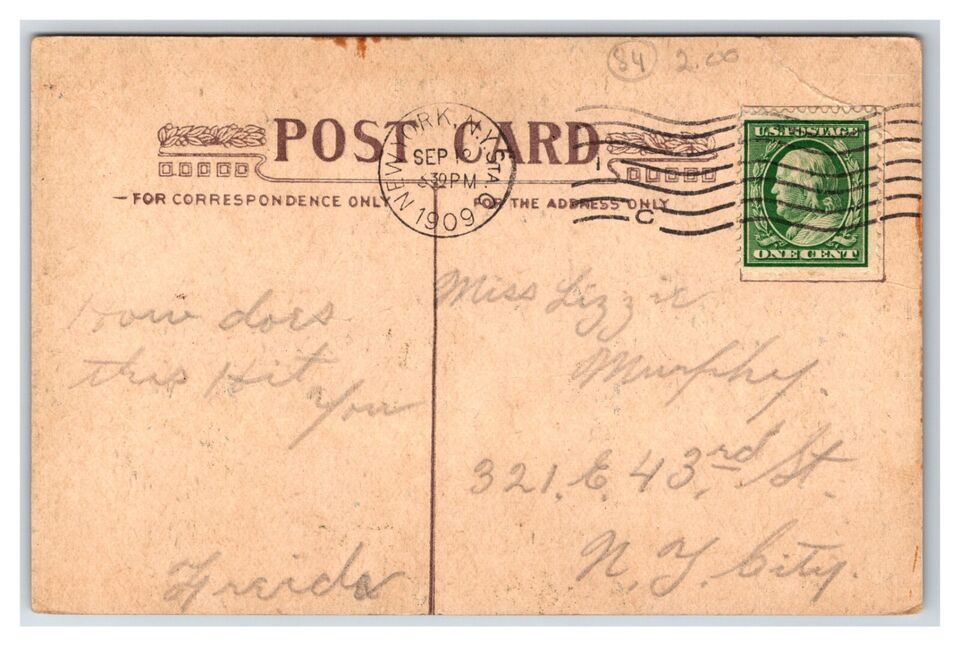 84 2.00
POST CARD
NEW YORK, N.Y. STA. O
SEP 16
530 PM
1909
1
C
U.S. POSTAGE
ONE CENT
— FOR CORRESPONDENCE ONLY —
FOR THE ADDRESS ONLY
How does
this Hit
You
Freida
Miss Lizzie
Murphy.
321. E. 43rd St.
N. Y. City.